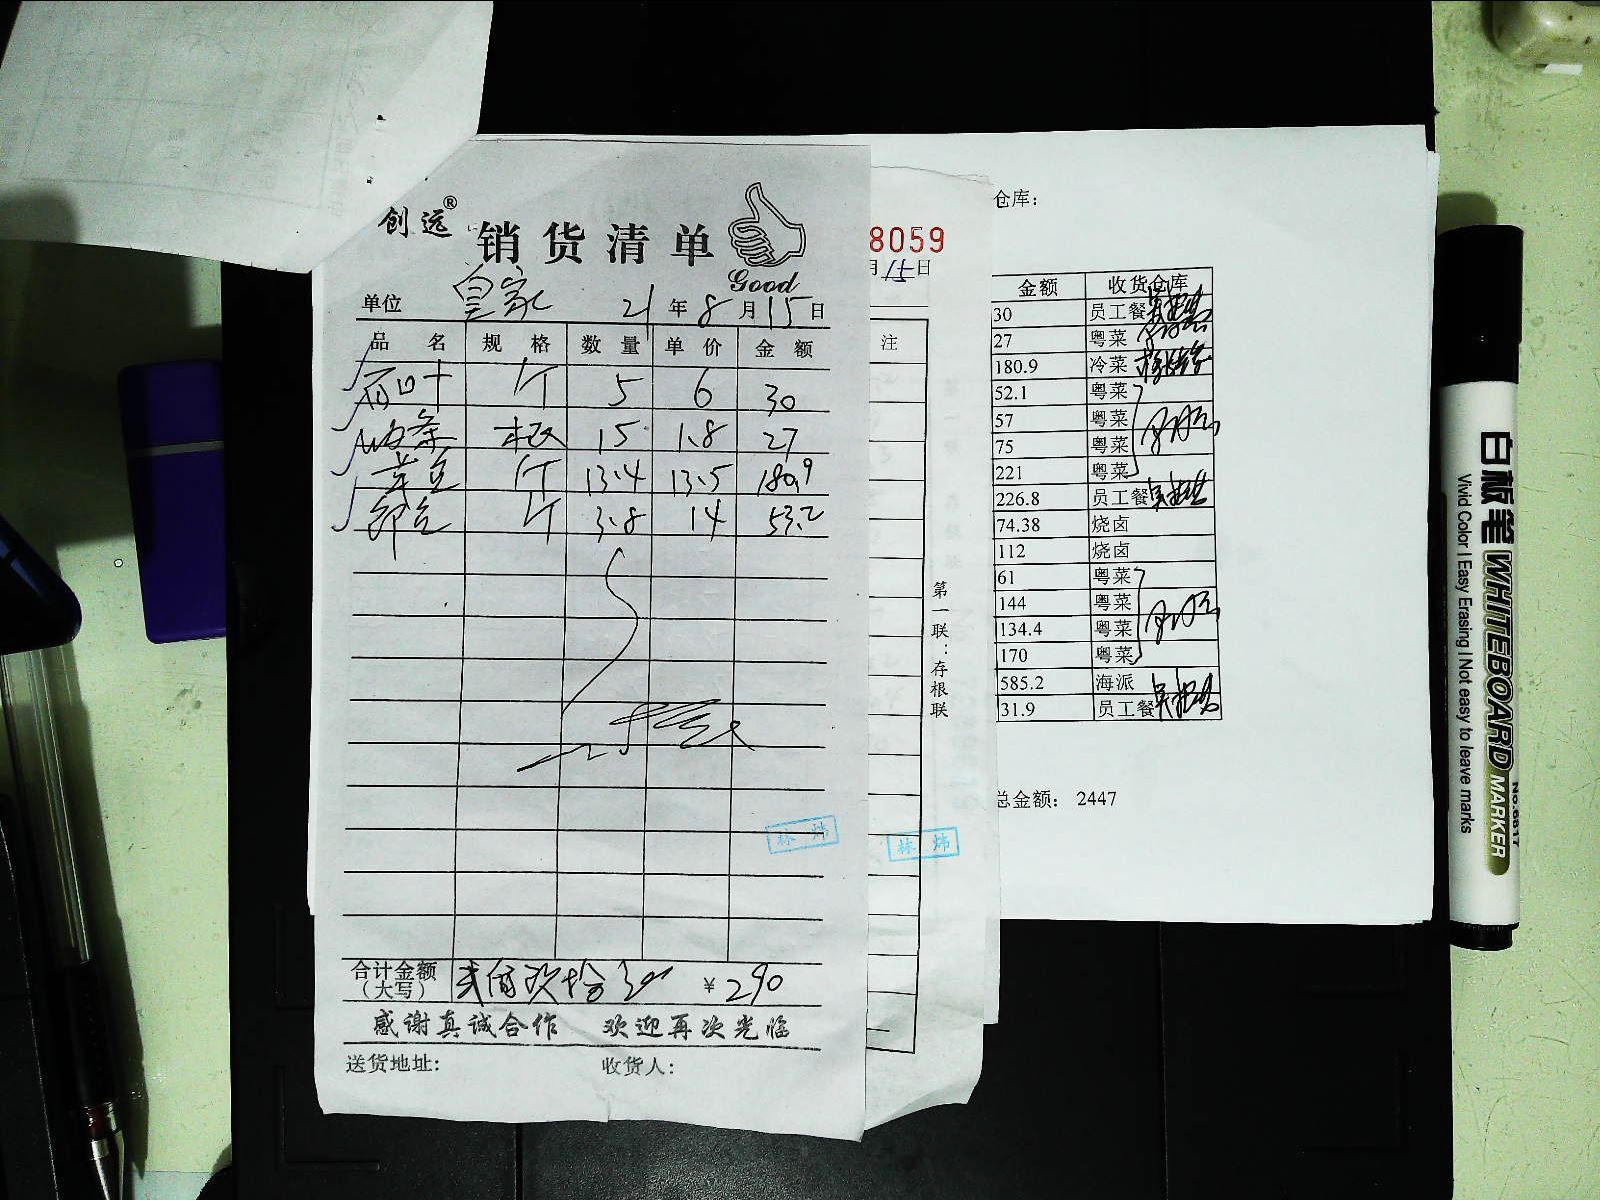 创远®
销货清单
Good
单位 皇家 21年8月15日
品名 规格 数量 单价 金额
个 5 6 30
根 15 1.8 27
个 13.4 13.5 180.9
个 3.8 14 53.2
合计金额
(大写) 贰佰玖拾 ¥290
感谢真诚合作 欢迎再次光临
送货地址: 收货人:
林炜
8059
月15日
注
第一联:存根联
林炜
仓库:
金额 收货仓库
30 员工餐
27 粤菜
180.9 冷菜
52.1 粤菜
57 粤菜
75 粤菜
221 粤菜
226.8 员工餐
74.38 烧卤
112 烧卤
61 粤菜
144 粤菜
134.4 粤菜
170 粤菜
585.2 海派
31.9 员工餐
总金额: 2447
白板笔 WHITEBOARD MARKER
Vivid Color | Easy Erasing | Not easy to leave marks